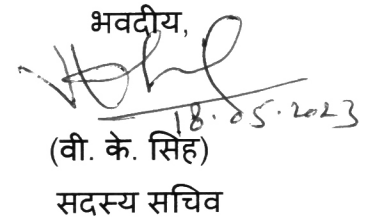 भवदीय,
18.05.2023
(वी. के. सिंह)
सदस्य सचिव